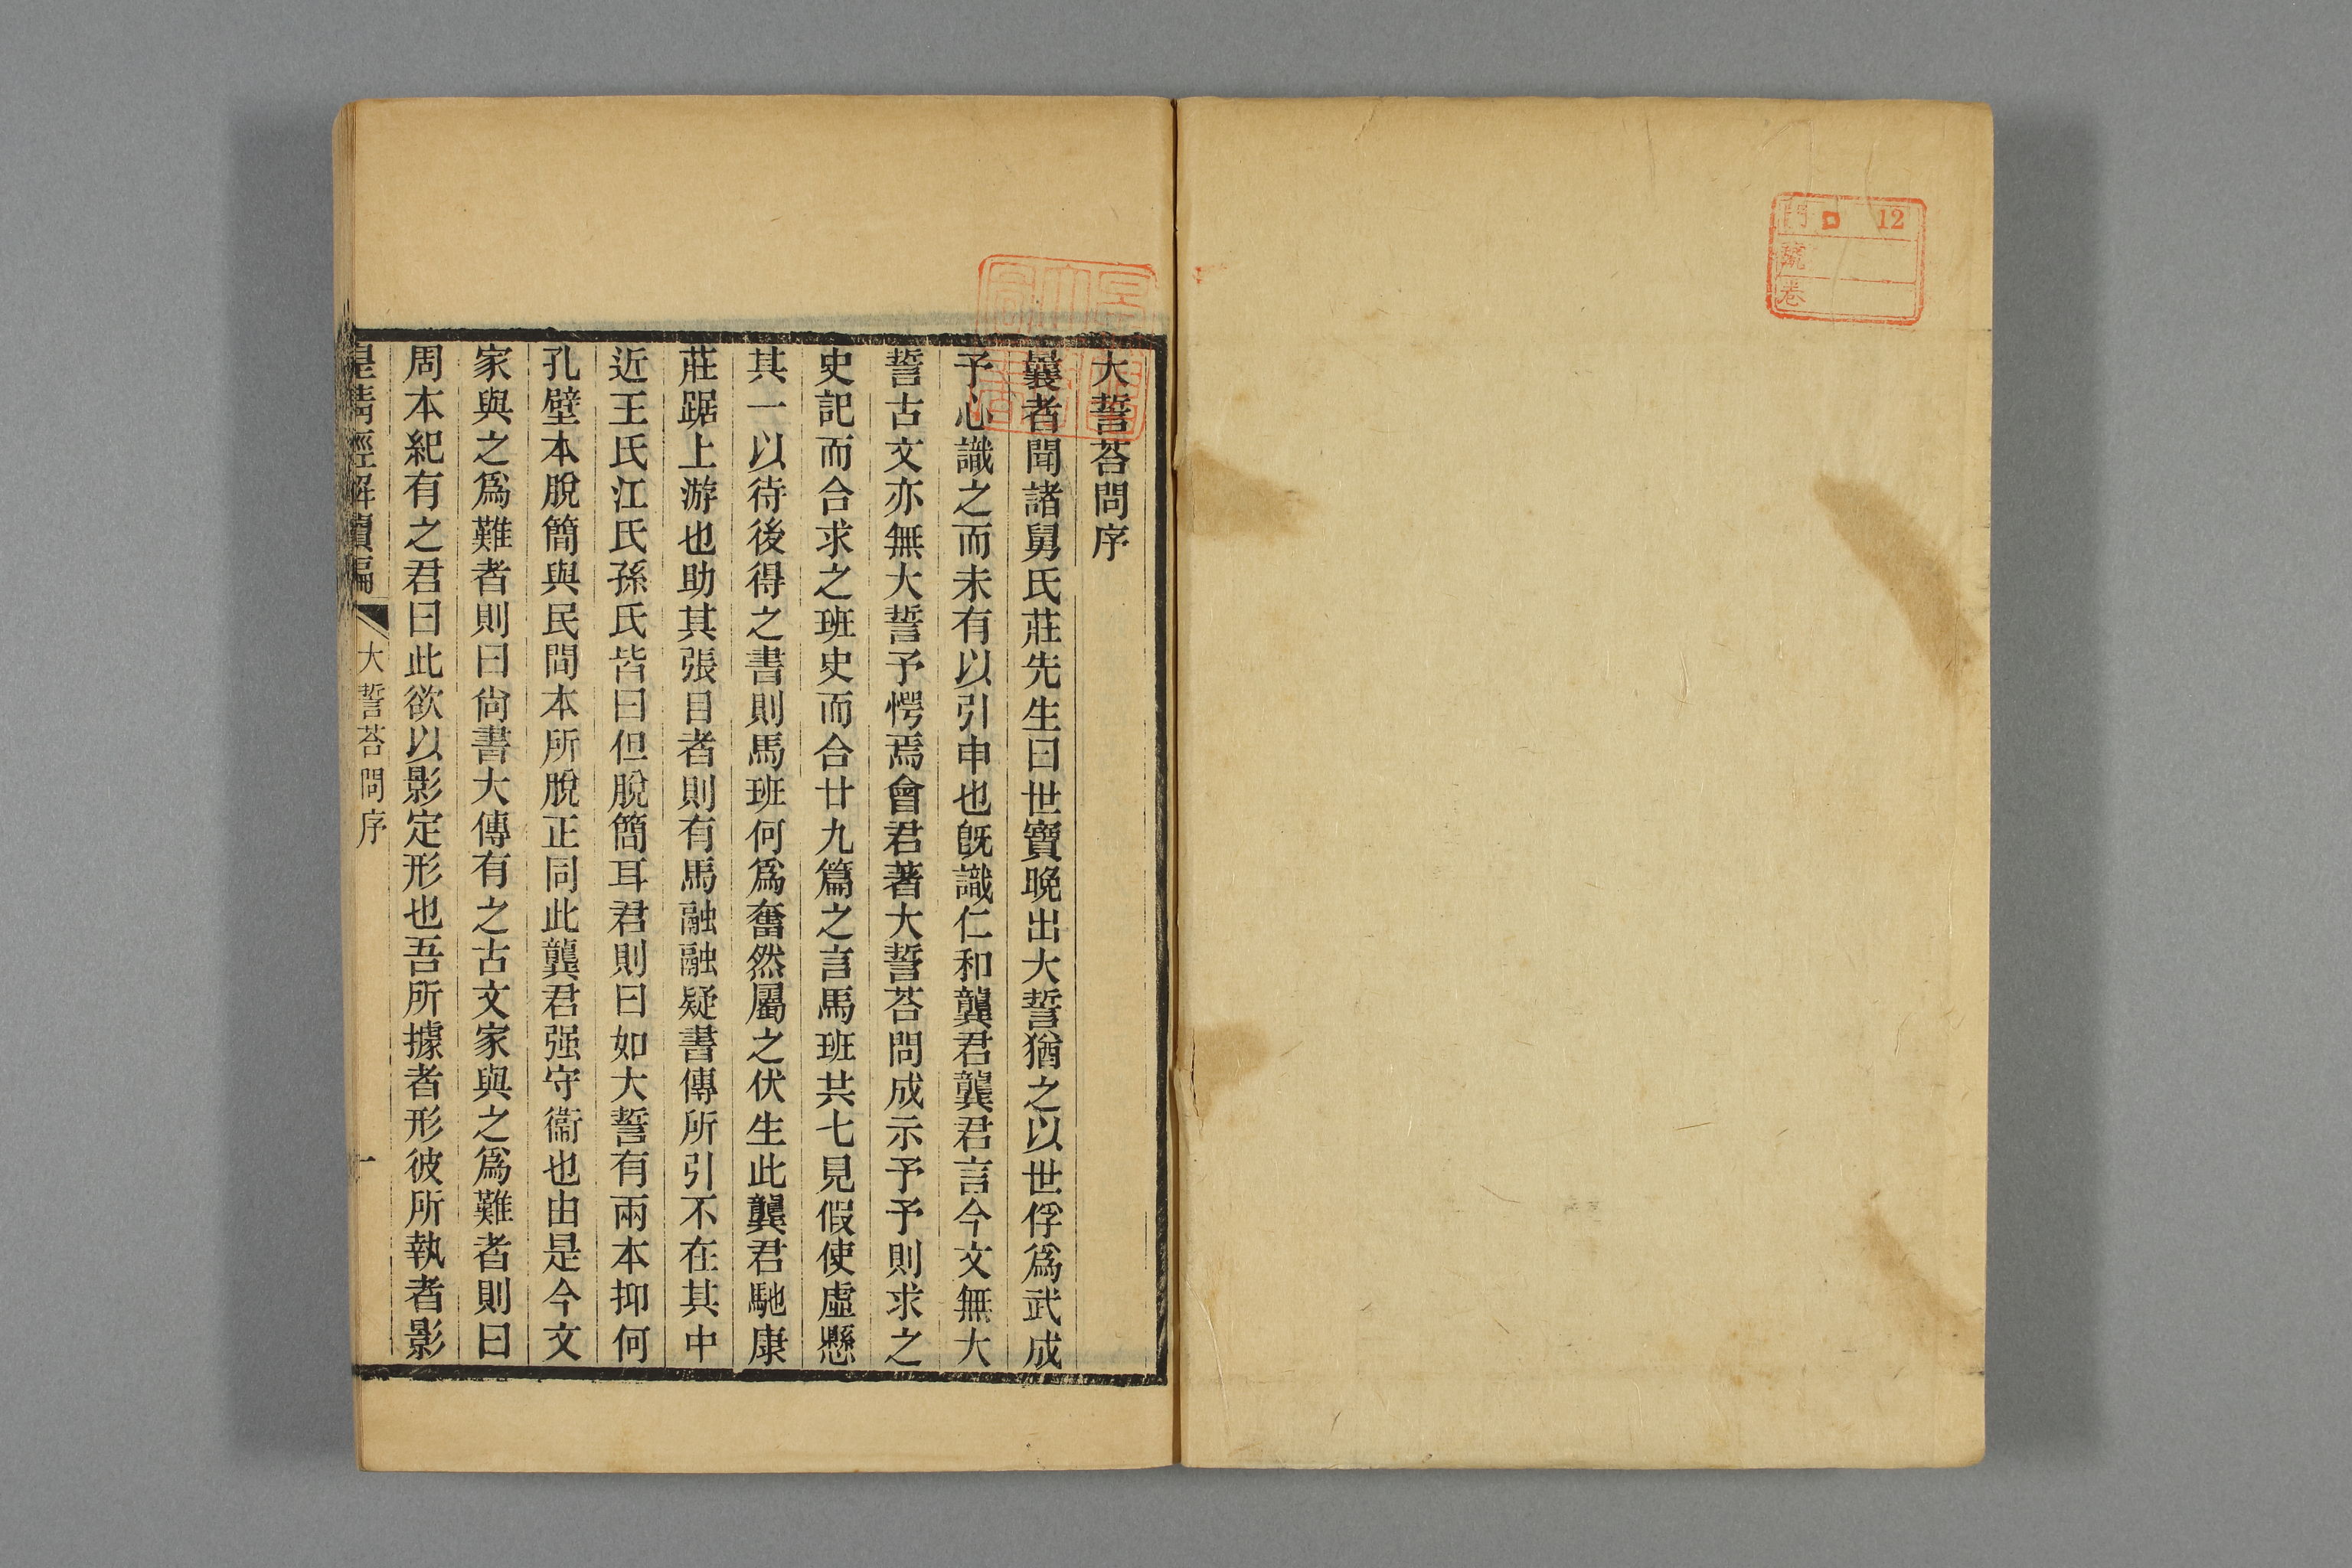 12
門
號
卷
大誓荅問序
曩者聞諸舅氏莊先生曰世寶晚出大誓猶之以世俘爲武成
予心識之而未有以引申也旣識仁和龔君龔君言今文無大
誓古文亦無大誓予愕焉會君著大誓荅問成示予予則求之
史記而合求之班史而合廿九篇之言馬班共七見假使虛懸
其一以待後得之書則馬班何爲奮然屬之伏生此龔君馳康
莊踞上游也助其張目者則有馬融融疑書傳所引不在其中
近王氏江氏孫氏皆曰但脫簡耳君則曰如大誓有兩本抑何
孔壁本脫簡與民間本所脫正同此龔君强守衞也由是今文
家與之爲難者則曰尙書大傳有之古文家與之爲難者則曰
周本紀有之君曰此欲以影定形也吾所據者形彼所執者影
皇清經解續編
大誓荅問序
一